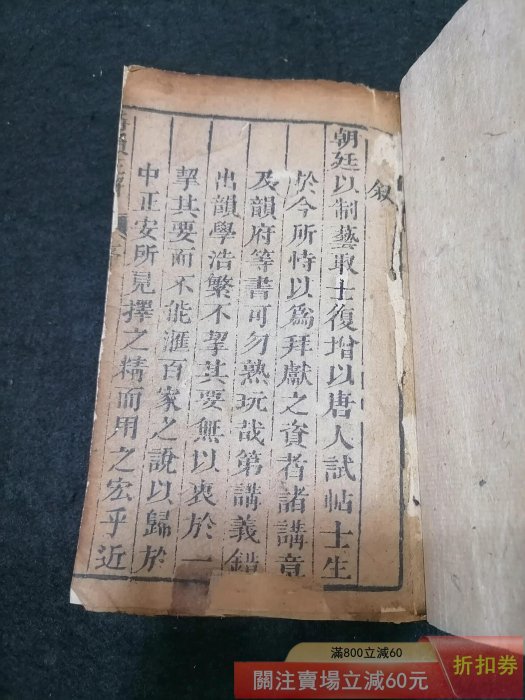 叙
朝廷以制藝取士復增以唐人試帖士生
於今所恃以爲拜獻之資者諸講章
及韻府等書可勿熟玩哉第講義錯
出韻學浩繁不挈其要無以衷於一
挈其要而不能滙百家之說以歸於
中正安所見擇之精而用之宏乎近
滿800立減60
關注賣場立減60元
折扣券